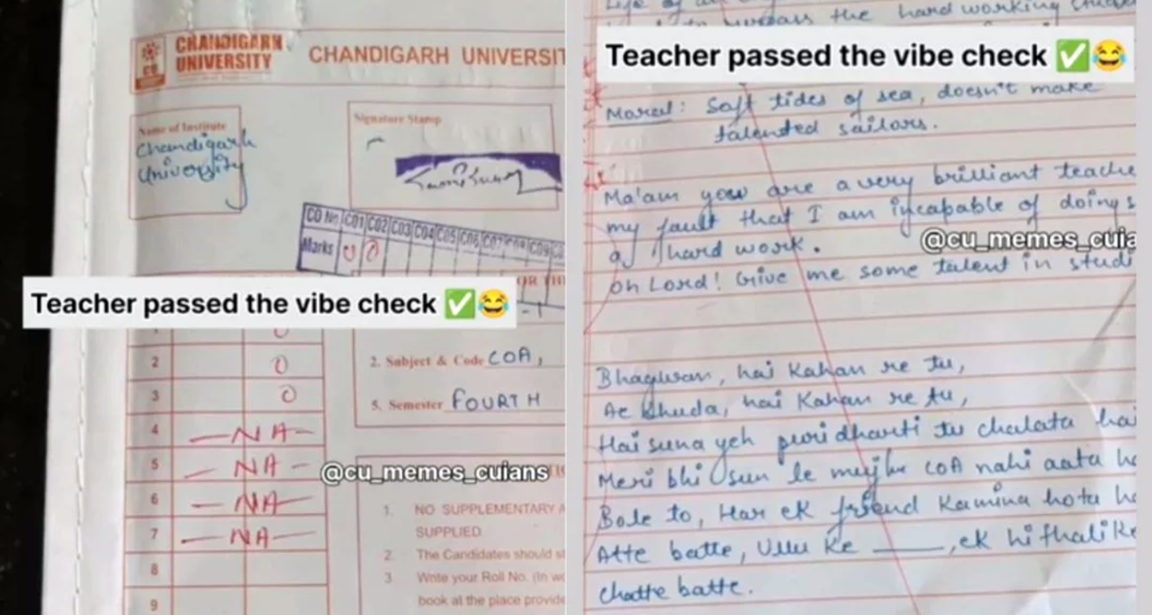 CHANDIGARH
UNIVERSITY
CHANDIGARH UNIVERSIT
Name of Institute
Chandigarh
University
Signature Stamp
CO No CO1 CO2 CO3 CO4 CO5 CO6 CO7 CO8 CO9
Marks 0 0
Teacher passed the vibe check ✅😂
2 0
3 0
4 —NA—
5 —NA—
6 —NA—
7 —NA—
8
9
2. Subject & Code COA,
5. Semester FOURTH
@cu_memes_cuians
1. NO SUPPLEMENTARY A
SUPPLIED.
2. The Candidates should s
3. Write your Roll No. (In w
book at the place provide
the hard working
Teacher passed the vibe check ✅😂
Moral: Soft tides of sea, doesn't make
talented sailors.
Ma'am you are a very brilliant teache
my fault that I am incapable of doing s
hard work.
@cu_memes_cuia
oh Lord! Give me some talent in studi
Bhagwan, hai Kahan re tu,
Ae khuda, hai Kahan re tu,
Hai suna yeh puri dharti tu chalata hai
Meri bhi sun le mujhe COA nahi aata h
Bole to, Har ek friend Kamina hota h
Atte batte, Ullu Ke ____, ek hi thali ke
chatte batte.